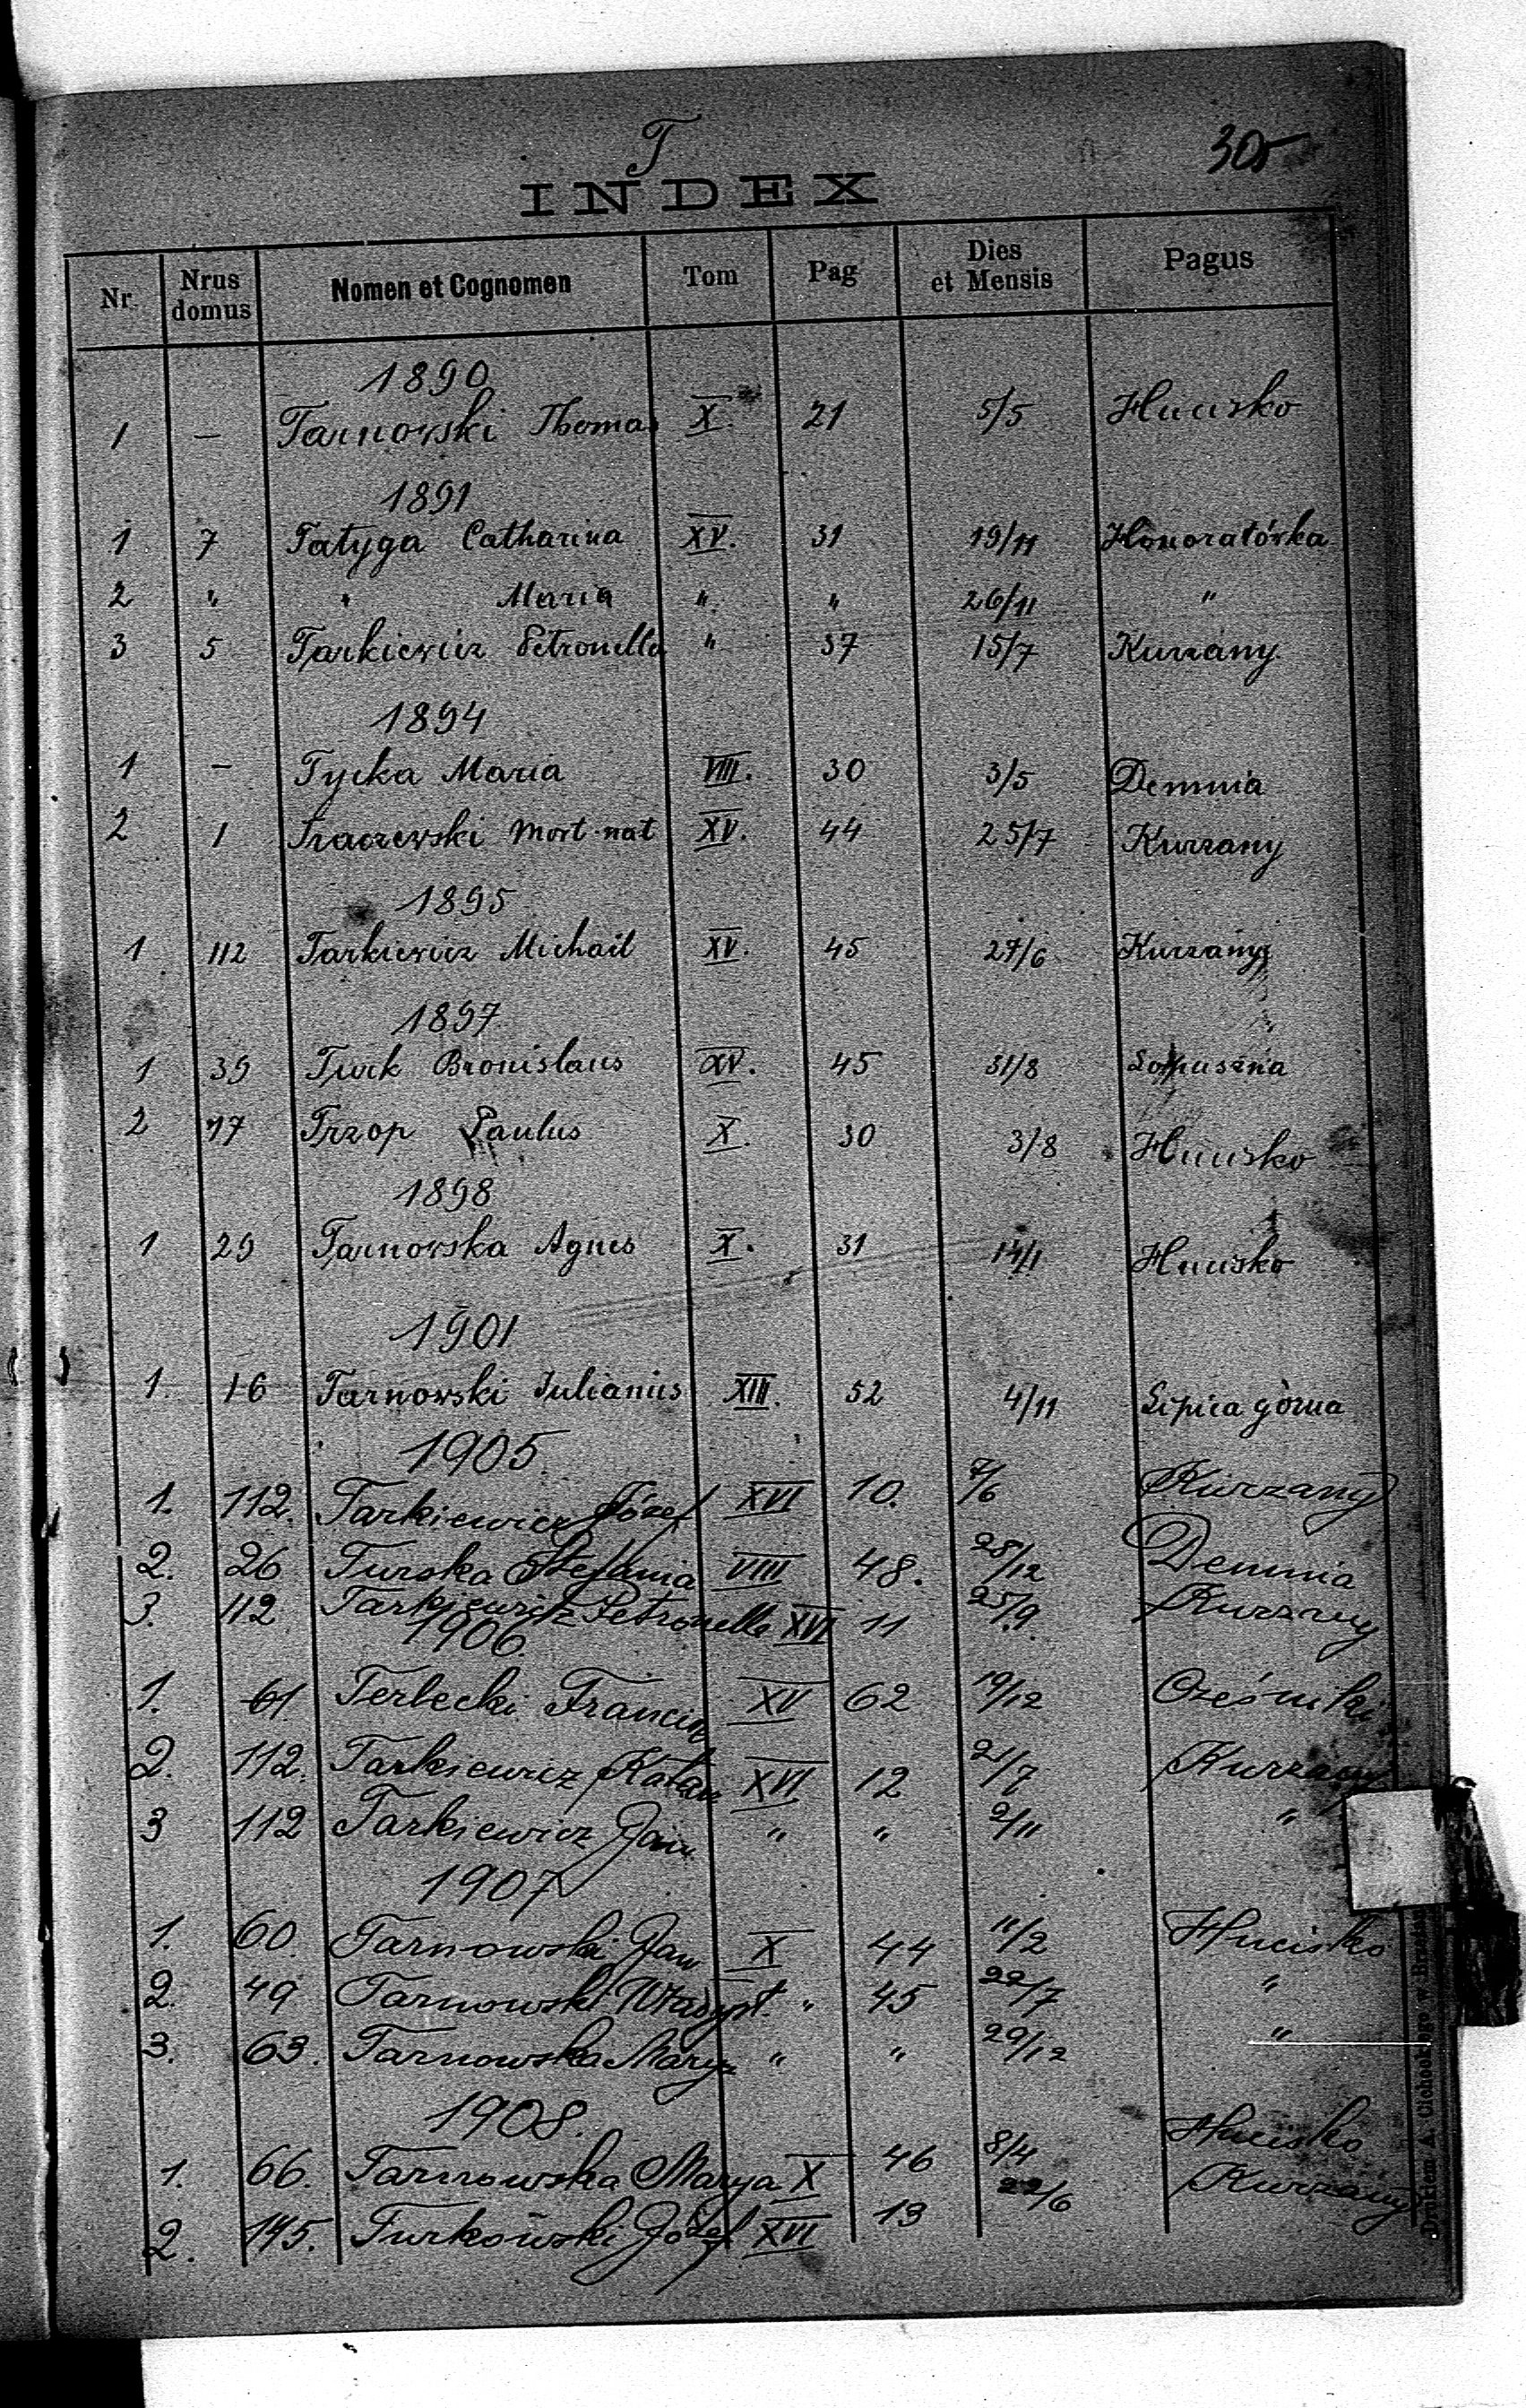 T
305
INDEX
Nr. Nrus domus Nomen et Cognomen Tom Pag Dies et Mensis Pagus
1890
1 — Tarnowski Thomas X. 21 5/5 Hucisko
1891
1 7 Tatyga Catharina XV. 31 19/11 Honoratówka
2 " " Maria " " 26/11 "
3 5 Tarkiewicz Petronella " 37 15/7 Kurzany
1894
1 — Tycka Maria VIII. 30 3/5 Demnia
2 1 mort nat XV. 44 25/7 Kurzany
1895
1 112 Tarkiewicz Michail XV. 45 27/6 Kurzany
1897
1 39 Turk Bronislaus XV. 45 31/8 Lopuszna
2 17 Trzop Paulus X. 30 3/8 Hucisko
1898
1 29 Tarnowska Agnes X. 31 14/1 Hucisko
1901
1. 16 Tarnowski Julianus XIII. 52 4/11 Lipica górna
1905
1. 112. Tarkiewicz Józef XVI 10. 7/6 Kurzany
2. 26 Turska Stefania VIII 48. 28/12 Demnia
3. 112 Tarkiewicz Petronella XVI 11 25/9. Kurzany
1906.
1. 61 Terlecki Francisz XV 62 19/12 Cześniki
2. 112. Tarkiewicz Katarz XVI 12 21/7 Kurzany
3 112 Tarkiewicz Jan " " 2/11 "
1907
1. 60. Tarnowski Jan X 44 11/2 Hucisko
2. 49 Tarnowski " 45 22/7 "
3. 63. Tarnowska Marya " " 29/12 "
1908.
1. 66. Tarnowska Marya X 46 8/4 Hucisko
2. 145. Turkowski Józef XVI 13 22/6 Kurzany